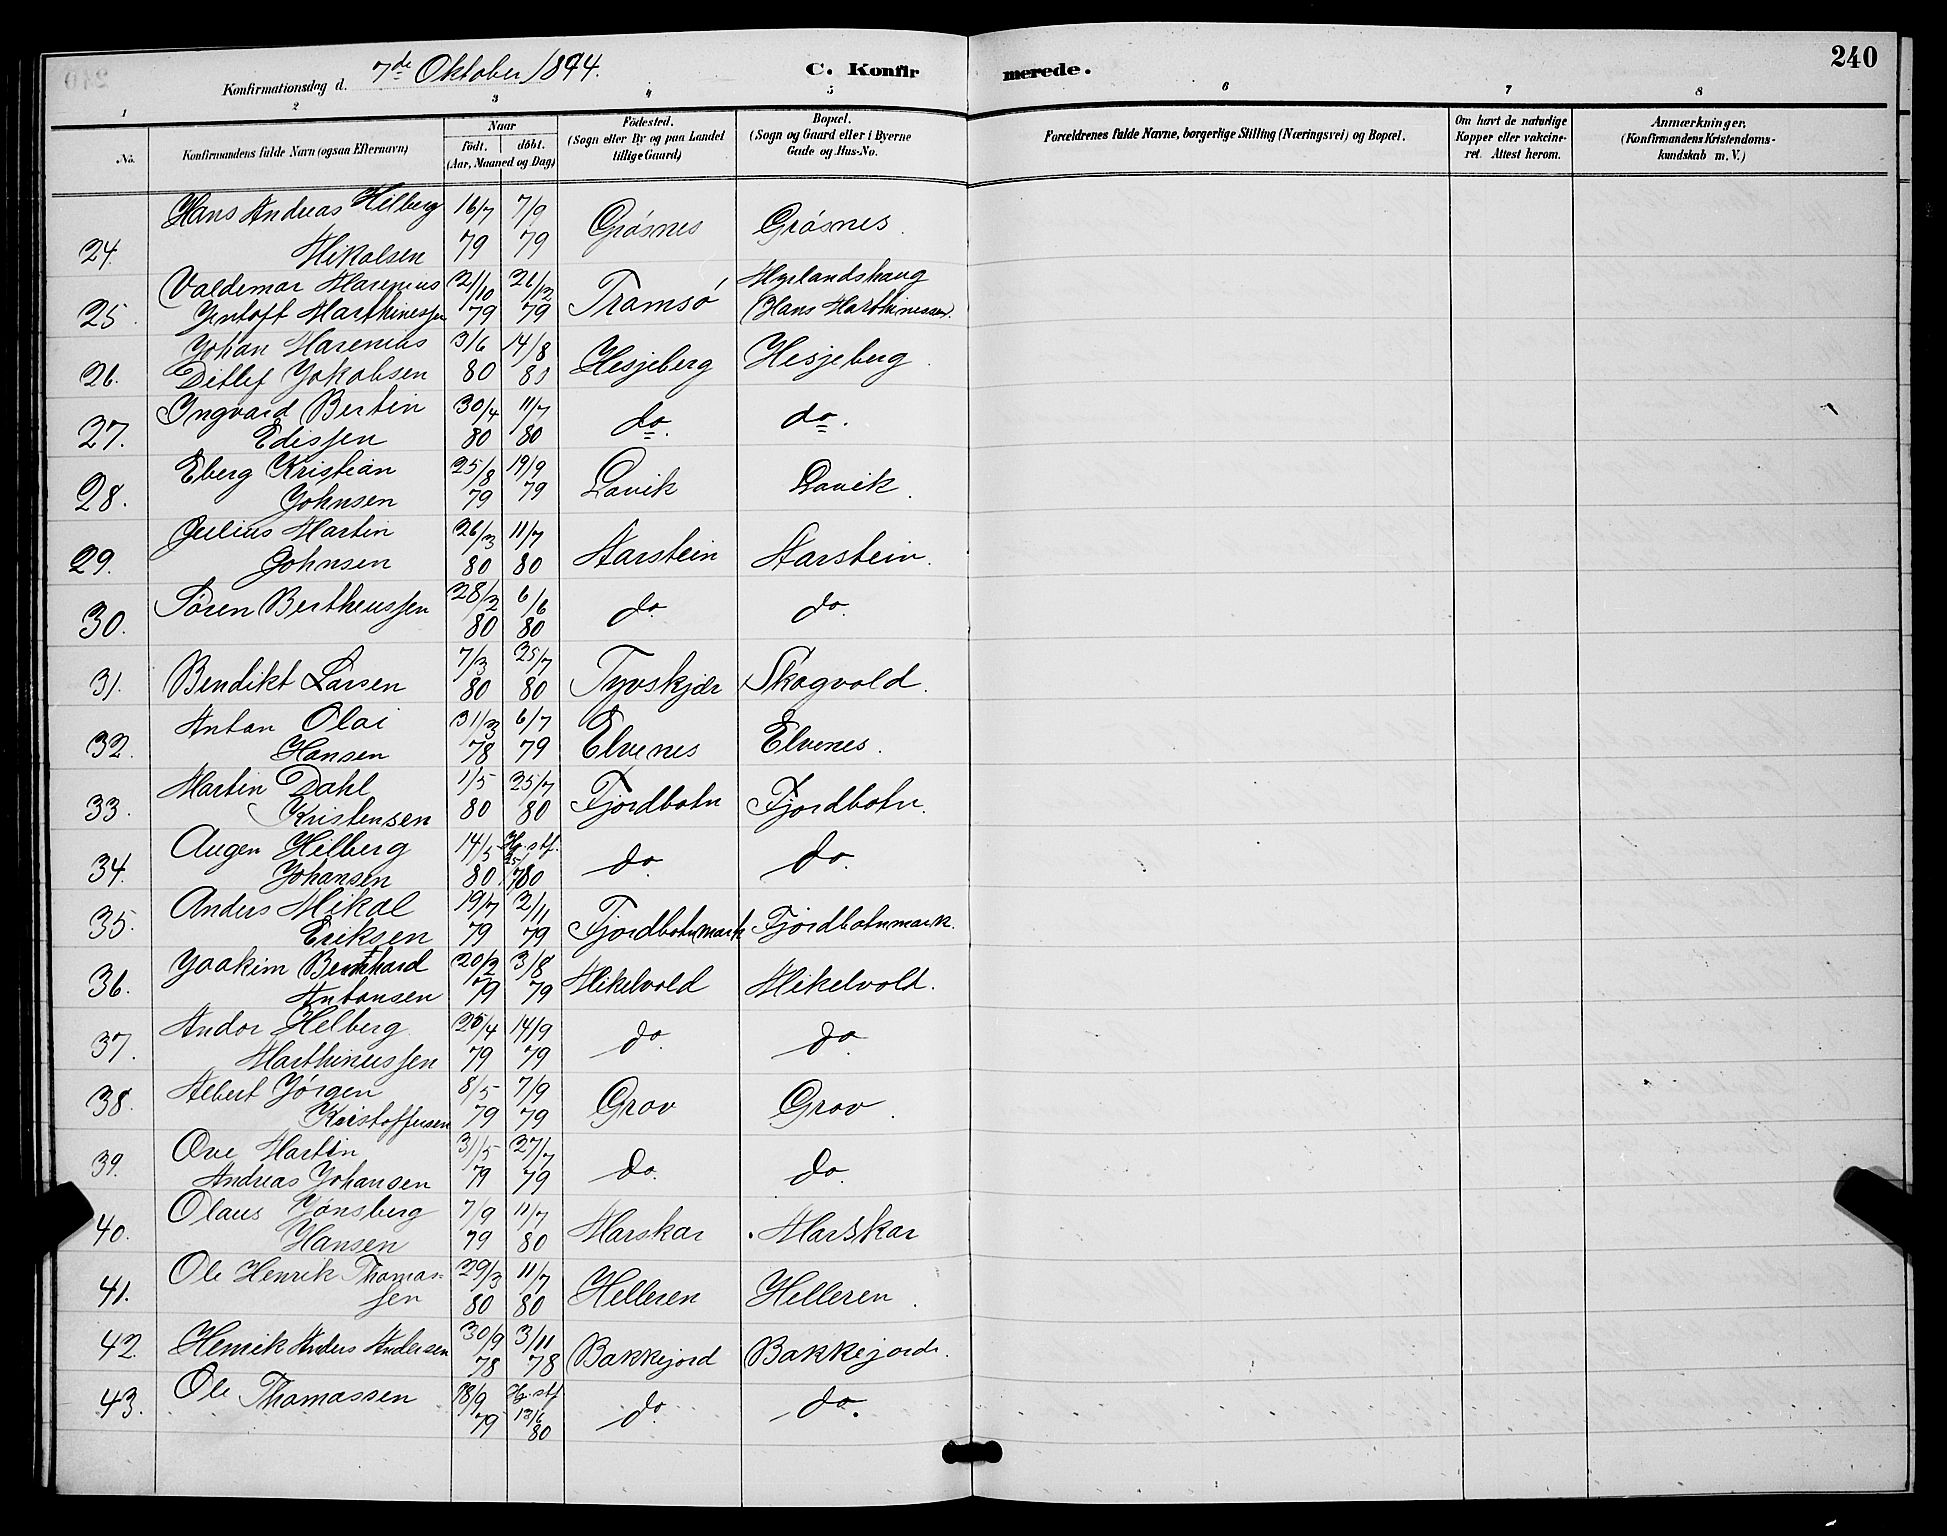 240
Konfirmationsdag d. 7de Oktober 1894.
C. Konfirmerede.
1 2 3 4 5 6 7 8
No.
Konfirmandens fulde Navn (ogsaa Efternavn)
Naar
födt. döbt.
(Aar, Maaned og Dag)
Födested.
(Sogn eller By og paa Landet
tillige Gaard)
Bopæl.
(Sogn og Gaard eller i Byerne
Gade og Hus-No.
Forældrenes fulde Navne, borgerlige Stilling (Næringsvei) og Bopæl.
Om havt de naturlige
Kopper eller vakcine-
ret. Attest herom.
Anmærkninger,
(Konfirmandens Kristendoms-
kundskab m. V.)
Hans Andreas Hilberg 16/7 7/9
24. Mikalsen 79 79 Grøsnes Grøsnes.
Valdemar Marenius 21/10 26/12 Myrlandshaug
25. Jentoft Marthinessen 79 79 Tromsø (Hans Marthinessen).
Johan Marenius 3/6 14/8
26. Ditlef Jakobsen 80 80 Hesjeberg Hesjeberg.
Ingvard Bertin 30/4 11/7
27. Edissen 80 80 do. do.
Eberg Kristian 25/8 19/9
28. Johnsen 79 79 Lavik Lavik.
Julius Martin 26/3 11/7
29. Johnsen 80 80 Aarstein Aarstein.
Søren Bertheussen 28/2 6/6
30. 80 80 do. do.
7/3 25/7
31. Bendikt Larsen 80 80 Tyvskjær Skogvold.
Anton Olai 31/3 6/7
32. Hansen 78 79 Elvenes Elvenes.
Martin Dahl 1/5 25/7
33. Kristensen 80 80 Fjordbotn Fjordbotn.
Augen Hilberg 14/5 Hj. stf.
34. Johansen 80 25/7 80 do. do.
Anders Mikal 19/7 2/11
35. Eriksen 79 79 Fjordbotnmark Fjordbotnmark.
Joakim Bernhard 20/2 3/8
36. Antonsen 79 79 Mikelvold Mikelvold.
Andor Helberg 25/4 14/9
37. Marthinussen 79 79 do. do.
Albert Jørgen 8/5 7/9
38. Kristoffersen 79 79 Grov Grov.
Ove Martin 31/5 27/7
39. Andreas Johansen 79 79 do. do.
Olaus Tønsberg 7/9 11/7
40. Hansen 79 80 Marskar Marskar
Ole Henrik Thomas- 29/3 11/7
41. sen 80 80 Helleren Helleren.
30/9 3/11
42. Henrik Anders Andersen 78 78 Bakkejord Bakkejord.
Ole Thomassen 18/9 Hj. stf.
43. 79 13/6 80 do. do.